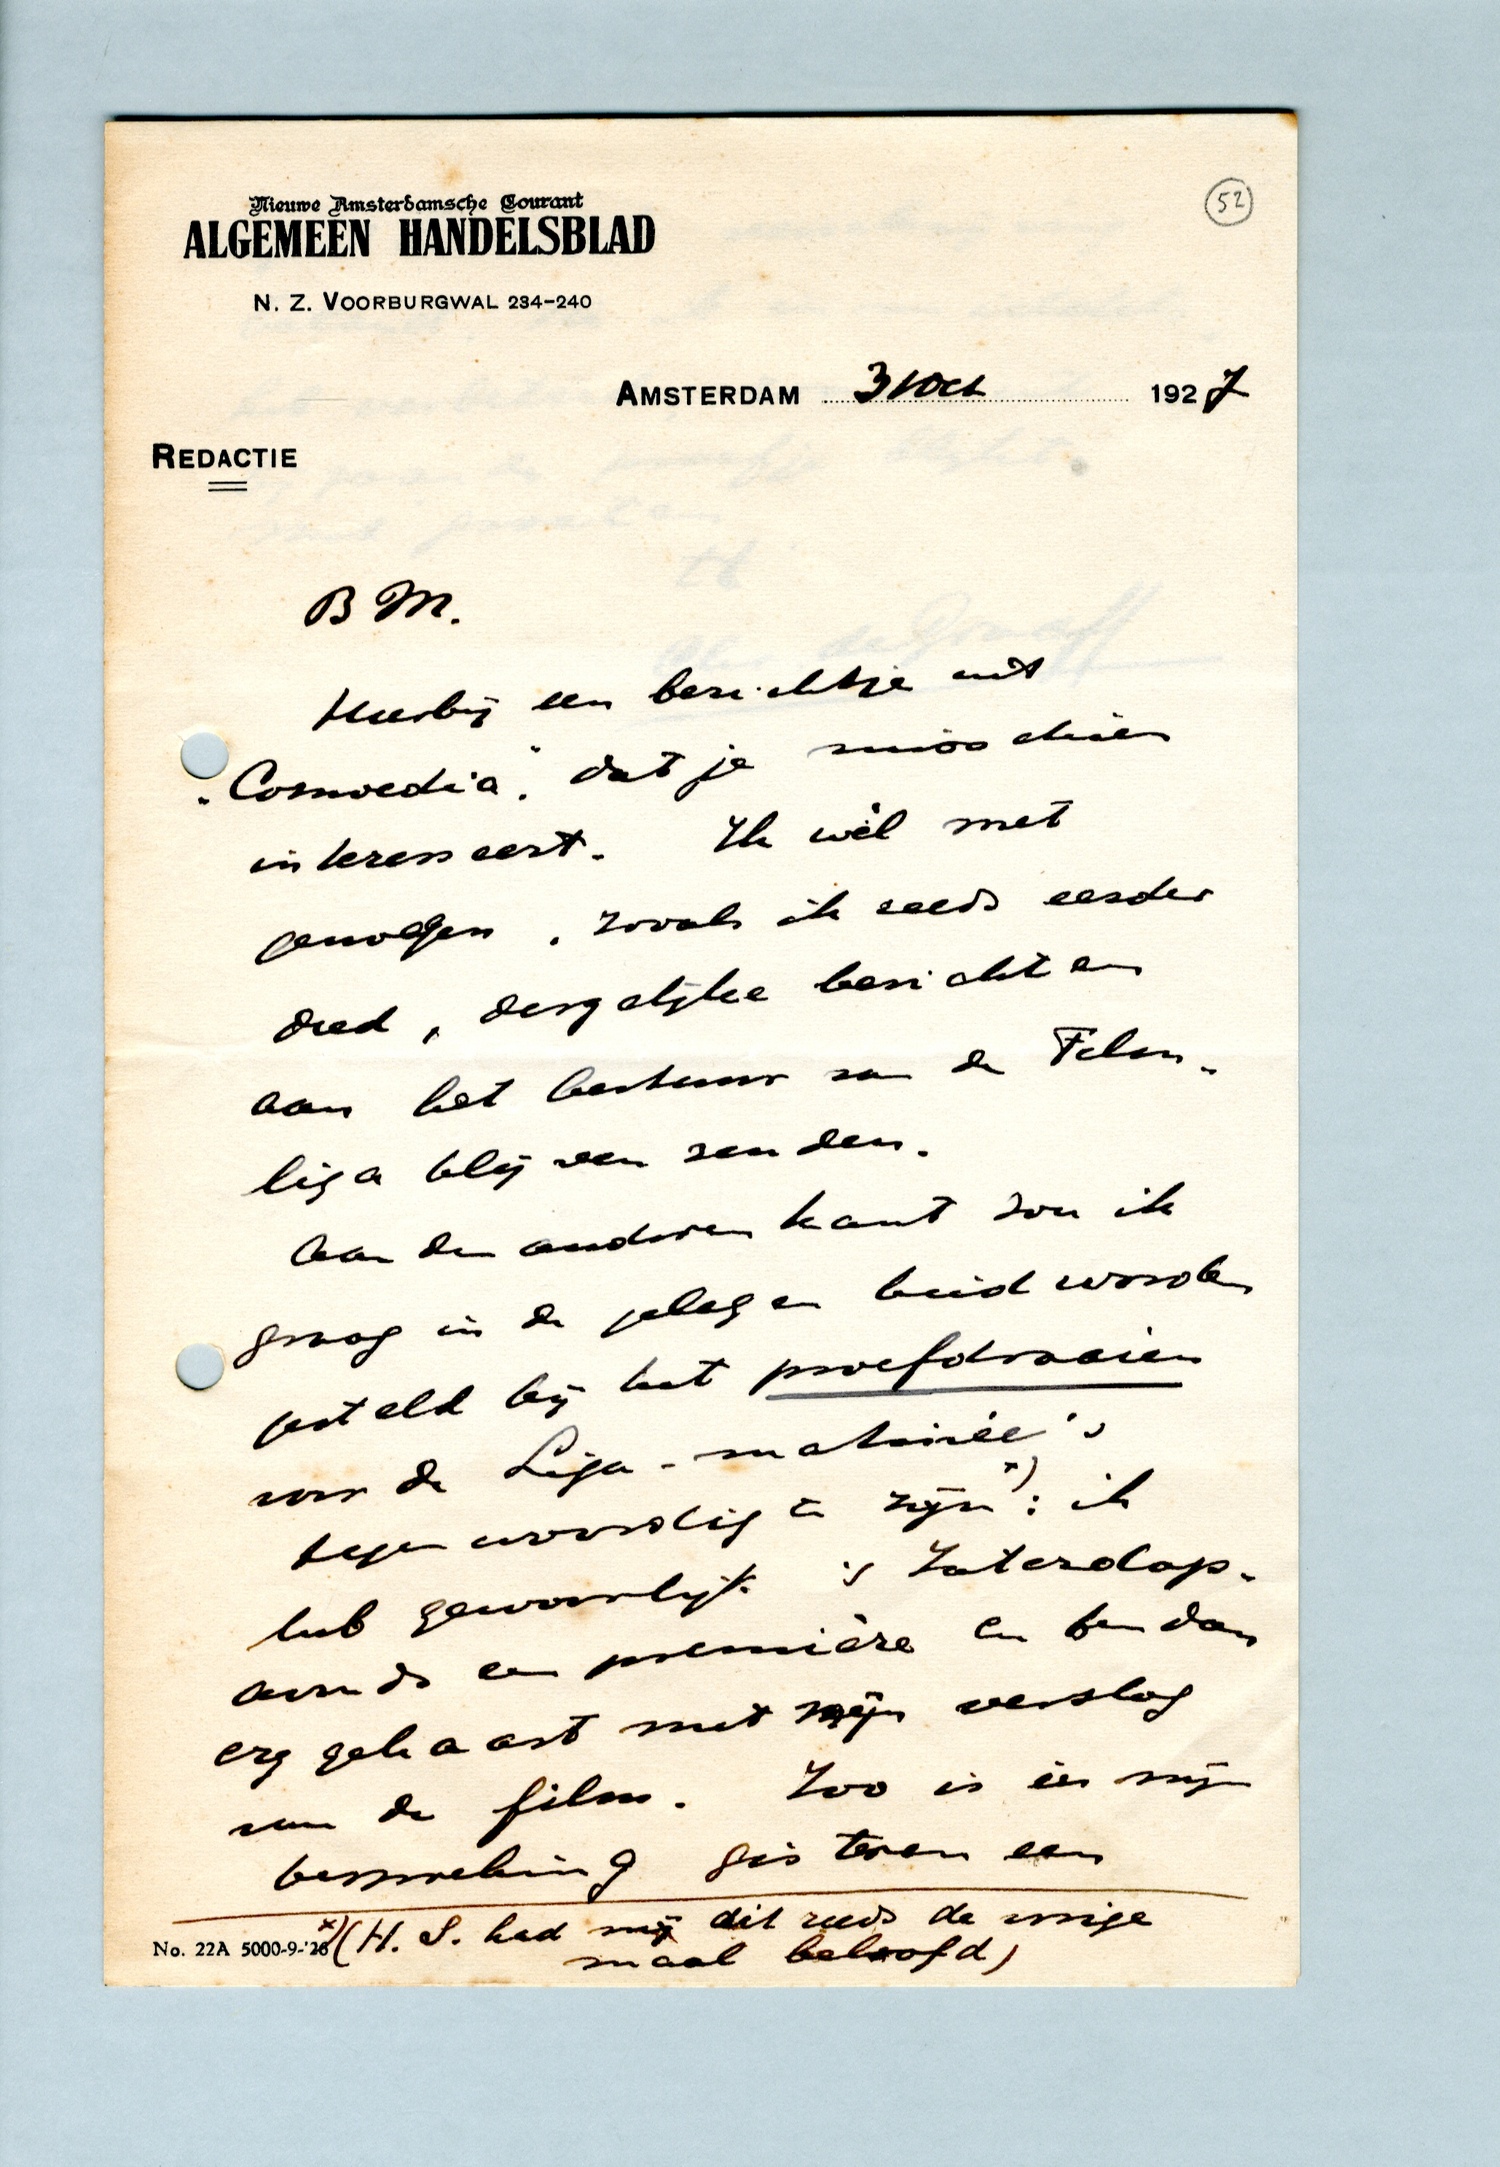 52
Nieuwe Amsterdamsche Courant
ALGEMEEN HANDELSBLAD
N. Z. VOORBURGWAL 234-240
AMSTERDAM 31 Oct 1927
REDACTIE
B M.
Hierbij een berichtje uit
„Comoedia”, dat je misschien
interesseert. Ik wèl met
genoegen, zooals ik reeds eerder
deed, dergelijke berichten
aan het bestuur van de Film-
liga blijven zenden.
Aan den anderen kant zou ik
graag in de gelegenheid worden
gesteld bij het proefdraaien
voor de Liga-matinée's
tegenwoordig te zijn x): ik
heb gewoonlijk 's Zaterdag-
avonds een première en ben dan
erg gehaast met mijn verslag
van de film. Zoo is in mijn
bespreking gisteren een
x) (H. S. had mij dit reeds de vorige
maal beloofd)
No. 22A 5000-9-'26